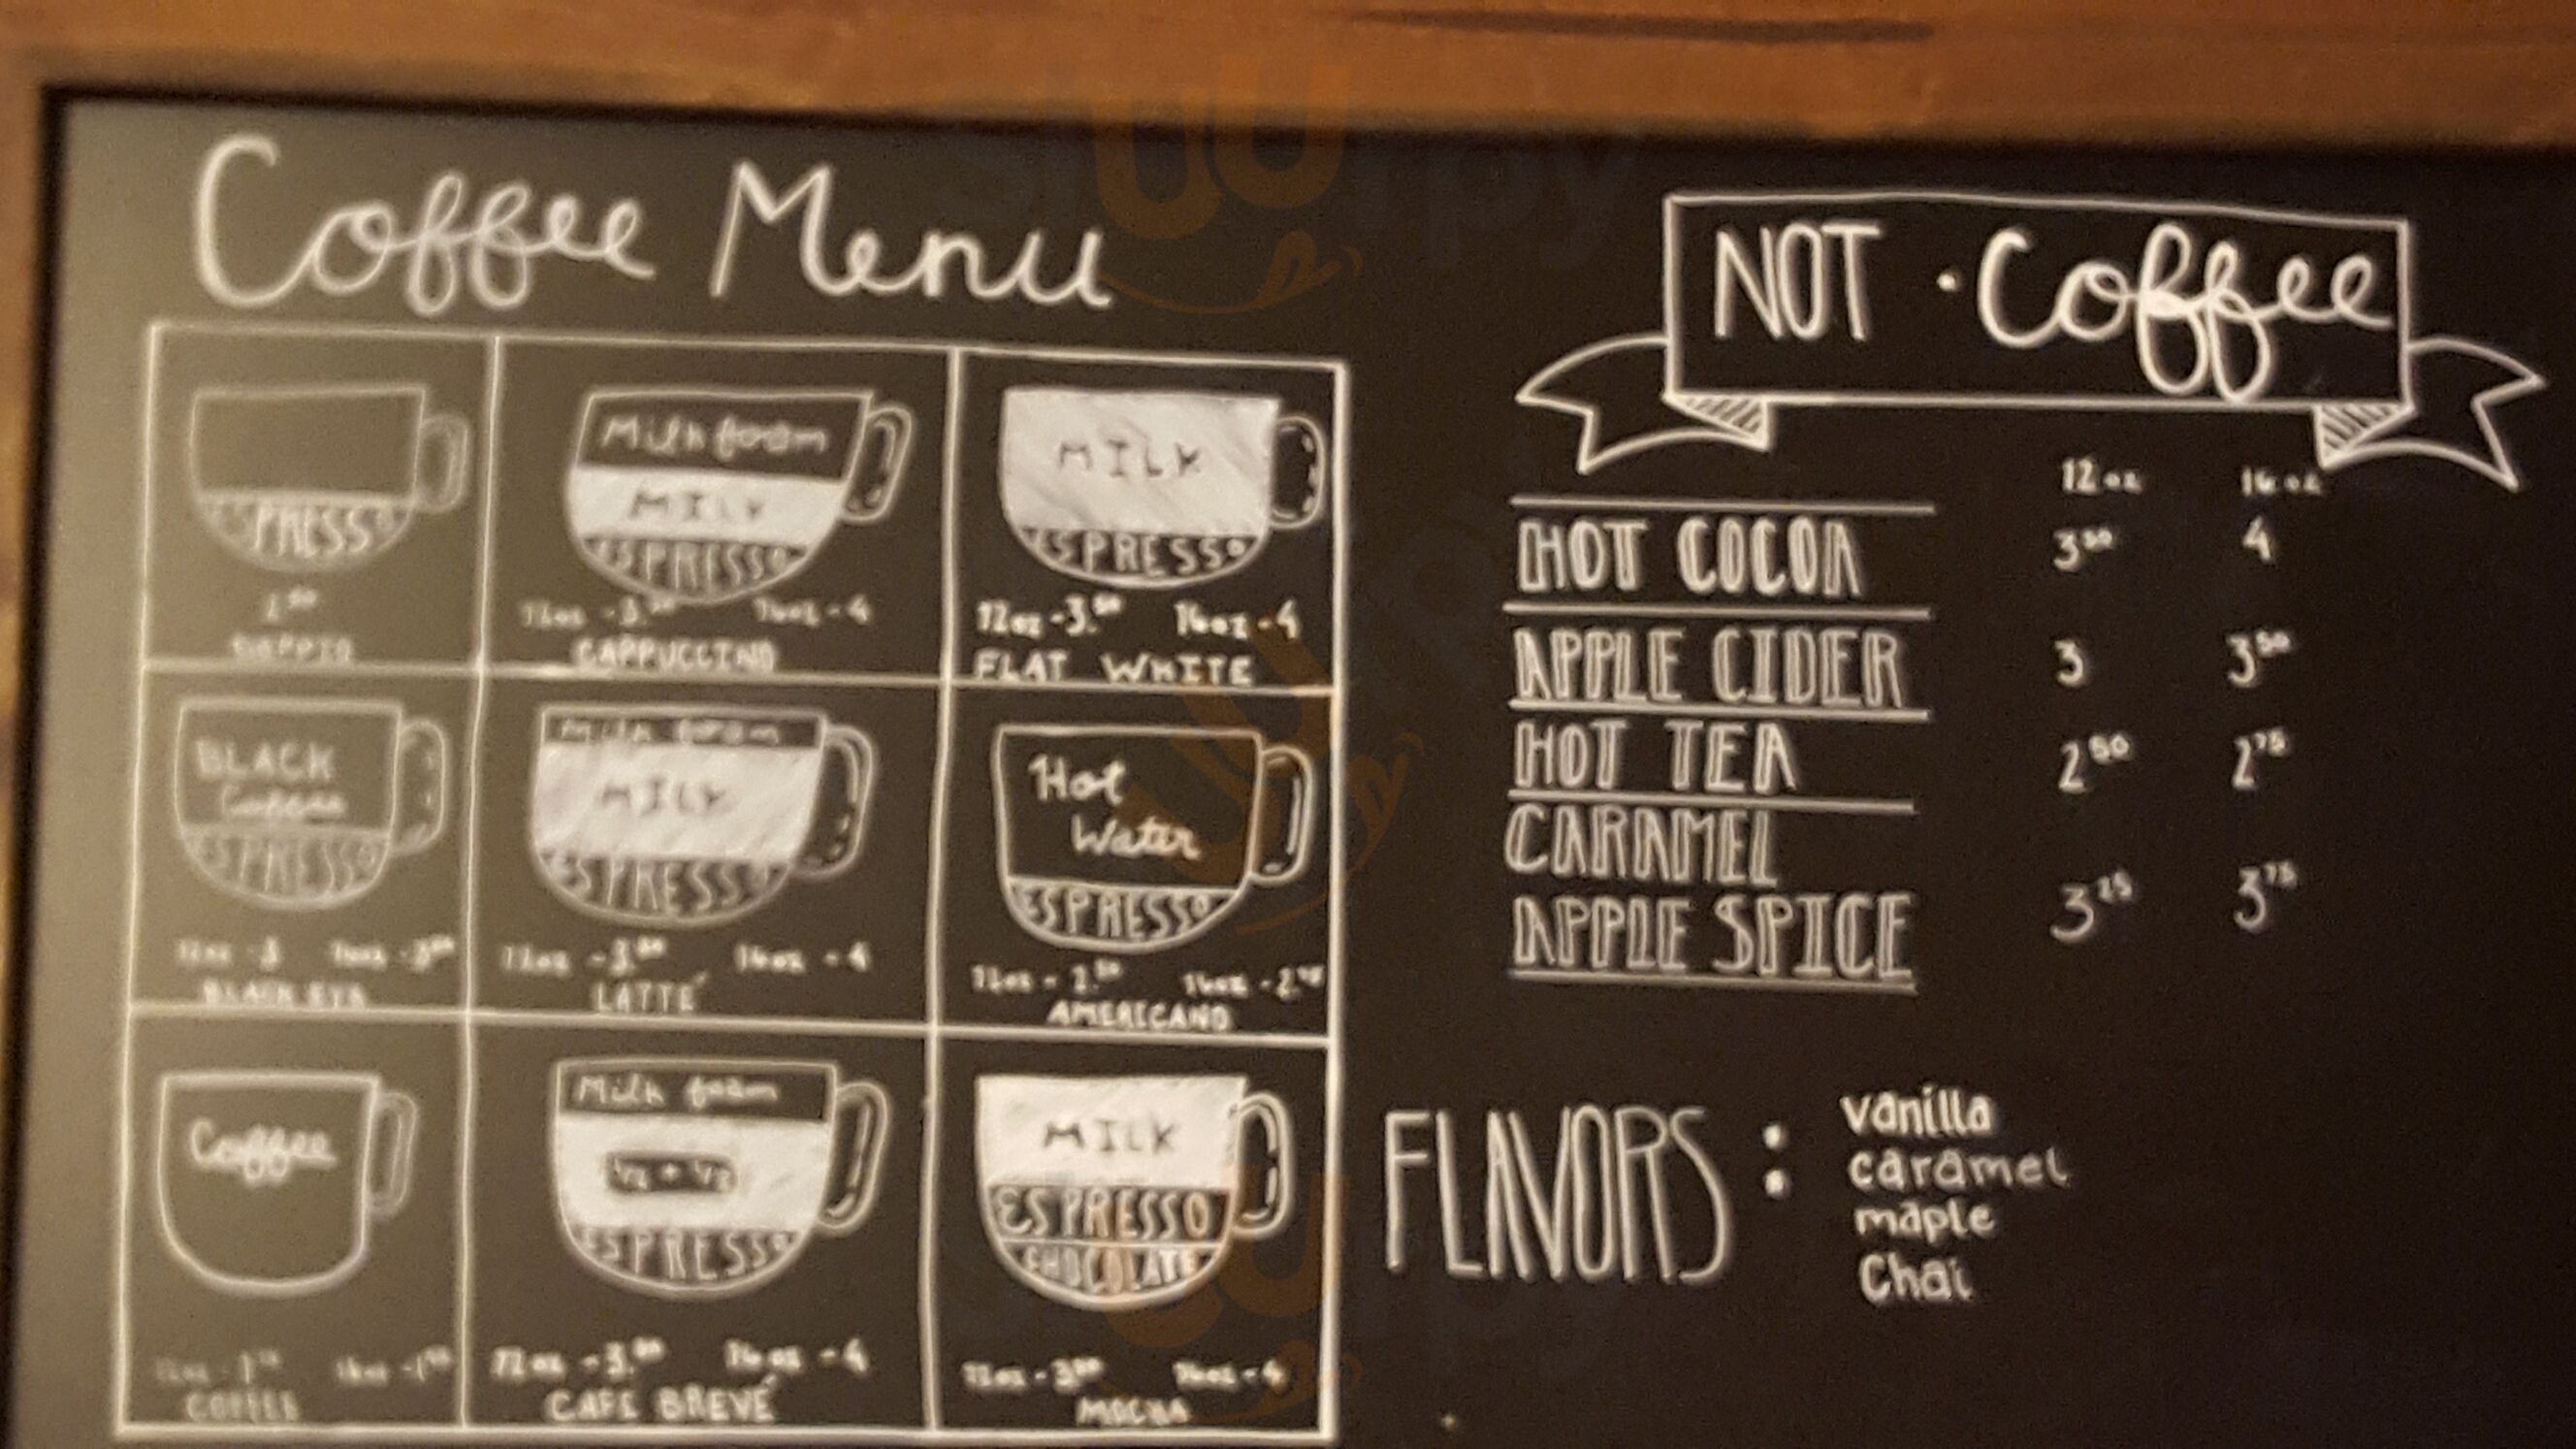 Coffee Menu
ESPRESSO
2⁵⁰
DOPPIO
Milk foam
MILK
ESPRESSO
12oz - 3.⁵⁰ 16oz - 4
CAPPUCCINO
MILK
ESPRESSO
12oz - 3.⁵⁰ 16oz - 4
FLAT WHITE
BLACK
Coffee
ESPRESSO
12oz - 3 16oz - 3⁵⁰
BLACK EYE
Milk foam
MILK
ESPRESSO
12oz - 3.⁵⁰ 16oz - 4
LATTÉ
Hot
Water
ESPRESSO
12oz - 2.⁵⁰ 16oz - 2.⁷⁵
AMERICANO
Coffee
12oz 16oz
COFFEE
Milk foam
½ + ½
ESPRESSO
12oz - 3.⁵⁰ 16oz - 4
CAFE BREVÉ
MILK
ESPRESSO
CHOCOLATE
12oz - 3⁵⁰ 16oz - 4
MOCHA
NOT · Coffee
12oz 16oz
HOT COCOA 3⁵⁰ 4
APPLE CIDER 3 3⁵⁰
HOT TEA 2⁵⁰ 2⁷⁵
CARAMEL
APPLE SPICE 3²⁵ 3⁷⁵
FLAVORS :
vanilla
caramel
maple
Chai